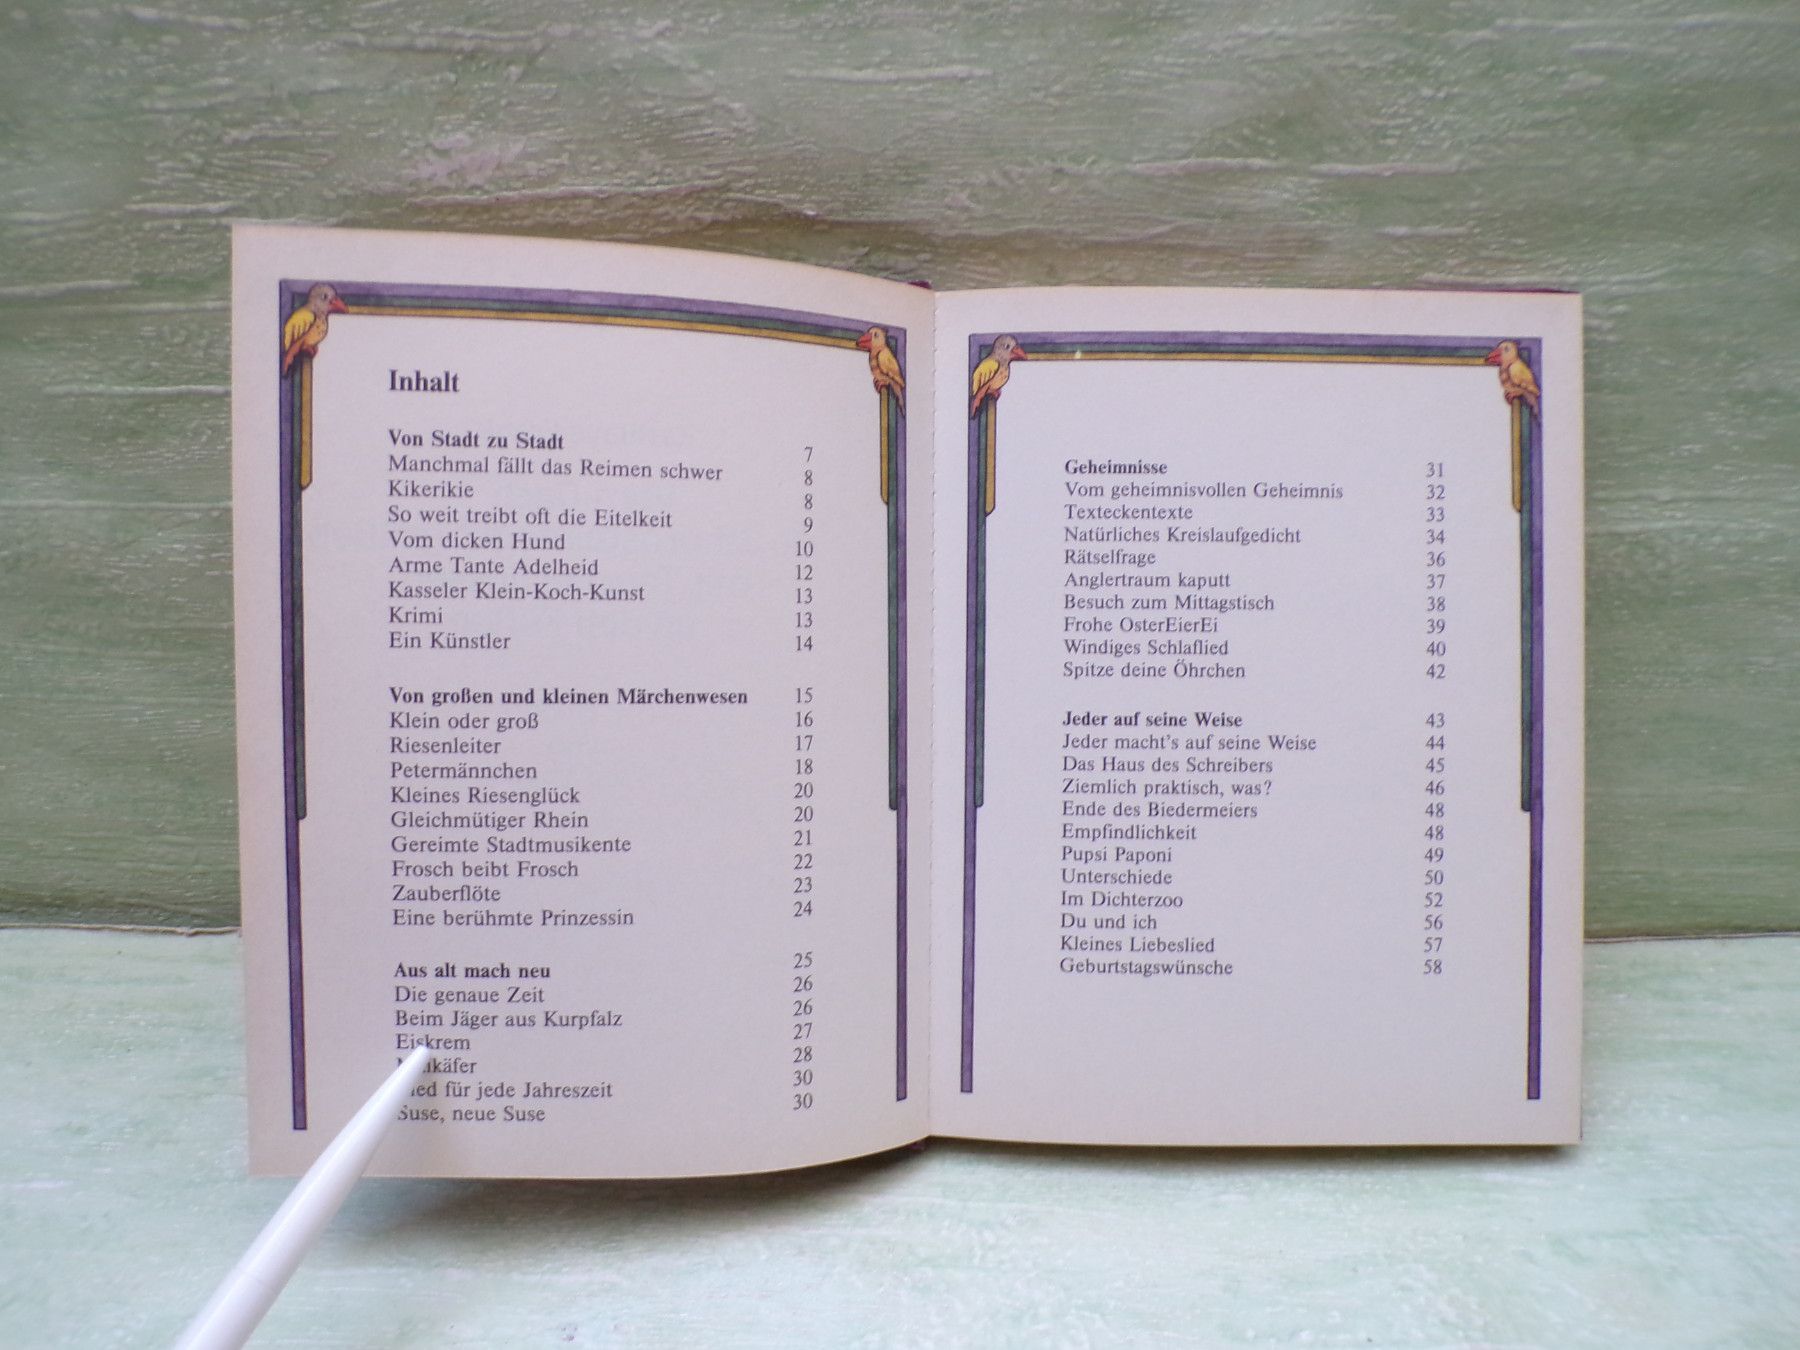 Inhalt
Von Stadt zu Stadt 7
Manchmal fällt das Reimen schwer 8
Kikerikie 8
So weit treibt oft die Eitelkeit 9
Vom dicken Hund 10
Arme Tante Adelheid 12
Kasseler Klein-Koch-Kunst 13
Krimi 13
Ein Künstler 14
Von großen und kleinen Märchenwesen 15
Klein oder groß 16
Riesenleiter 17
Petermännchen 18
Kleines Riesenglück 20
Gleichmütiger Rhein 20
Gereimte Stadtmusikente 21
Frosch beibt Frosch 22
Zauberflöte 23
Eine berühmte Prinzessin 24
Aus alt mach neu 25
Die genaue Zeit 26
Beim Jäger aus Kurpfalz 26
Eiskrem 27
28
für jede Jahreszeit 30
Suse, neue Suse 30
Geheimnisse 31
Vom geheimnisvollen Geheimnis 32
Texteckentexte 33
Natürliches Kreislaufgedicht 34
Rätselfrage 36
Anglertraum kaputt 37
Besuch zum Mittagstisch 38
Frohe OsterEierEi 39
Windiges Schlaflied 40
Spitze deine Öhrchen 42
Jeder auf seine Weise 43
Jeder macht's auf seine Weise 44
Das Haus des Schreibers 45
Ziemlich praktisch, was? 46
Ende des Biedermeiers 48
Empfindlichkeit 48
Pupsi Paponi 49
Unterschiede 50
Im Dichterzoo 52
Du und ich 56
Kleines Liebeslied 57
Geburtstagswünsche 58